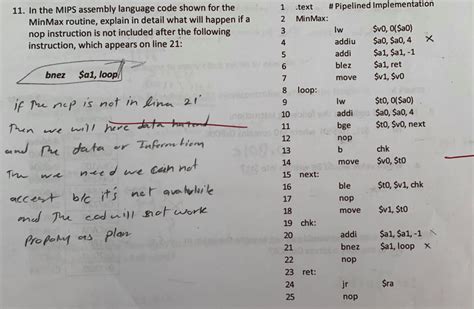 11. In the MIPS assembly language code shown for the
MinMax routine, explain in detail what will happen if a
nop instruction is not included after the following
instruction, which appears on line 21:
bnez $a1, loop
if the nop is not in line 21
Then we will have data hazard
and The data or Information
The we need we can not
access b/c it's not available
and The cod will not work
Propaly as plan
1 .text # Pipelined Implementation
2 MinMax:
3 lw $v0, 0($a0)
4 addiu $a0, $a0, 4 X
5 addi $a1, $a1, -1
6 blez $a1, ret
7 move $v1, $v0
8 loop:
9 lw $t0, 0($a0)
10 addi $a0, $a0, 4
11 bge $t0, $v0, next
12 nop
13 b chk
14 move $v0, $t0
15 next:
16 ble $t0, $v1, chk
17 nop
18 move $v1, $t0
19 chk:
20 addi $a1, $a1, -1
21 bnez $a1, loop X
22 nop
23 ret:
24 jr $ra
25 nop